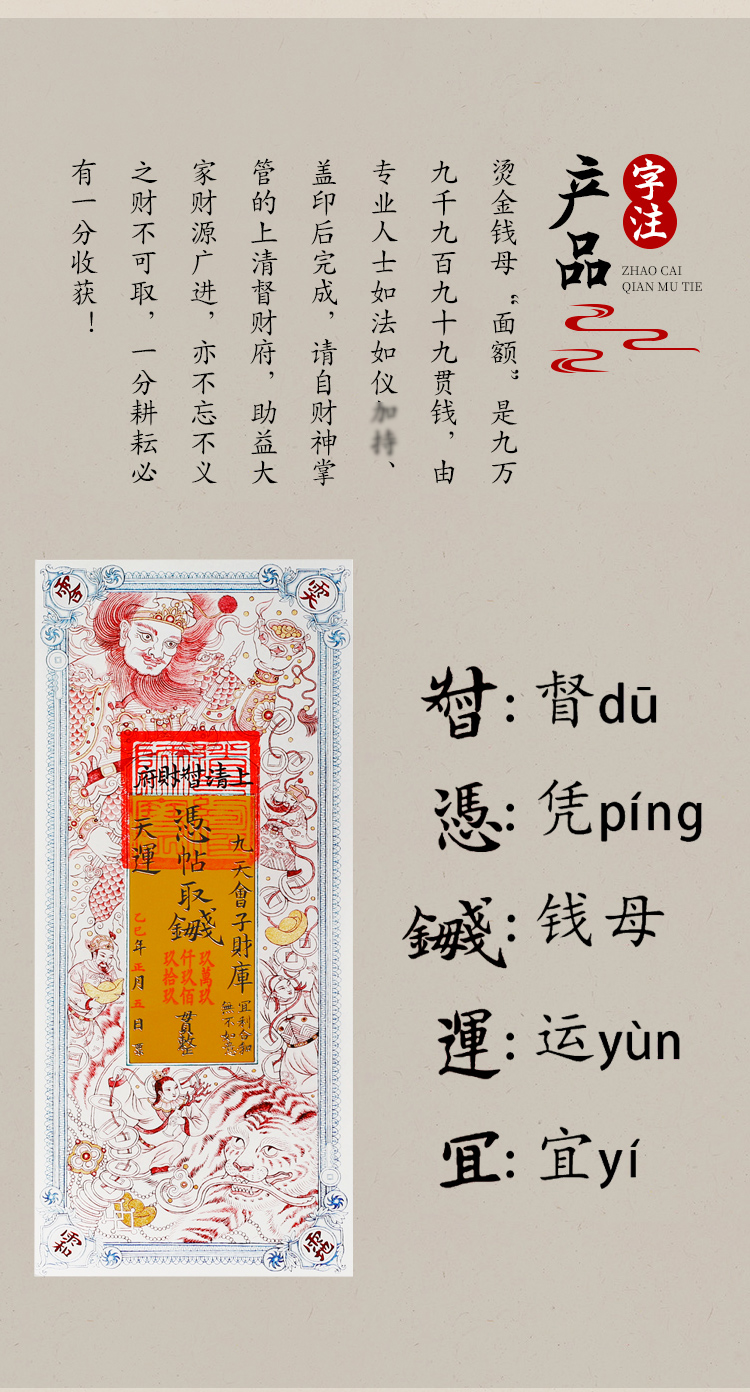 产品
字注
ZHAO CAI
QIAN MU TIE
烫金钱母“面额”是九万
九千九百九十九贯钱，由
专业人士如法如仪加持、
盖印后完成，请自财神掌
管的上清督财府，助益大
家财源广进，亦不忘不义
之财不可取，一分耕耘必
有一分收获！
上清督財府
九天會子財庫
宜利合和
無不如意
憑帖取
玖萬玖
仟玖佰
玖拾玖
貫整
天運
乙巳年正月五日 票
：督dū
憑：凭píng
：钱母
運：运yùn
冝：宜yí